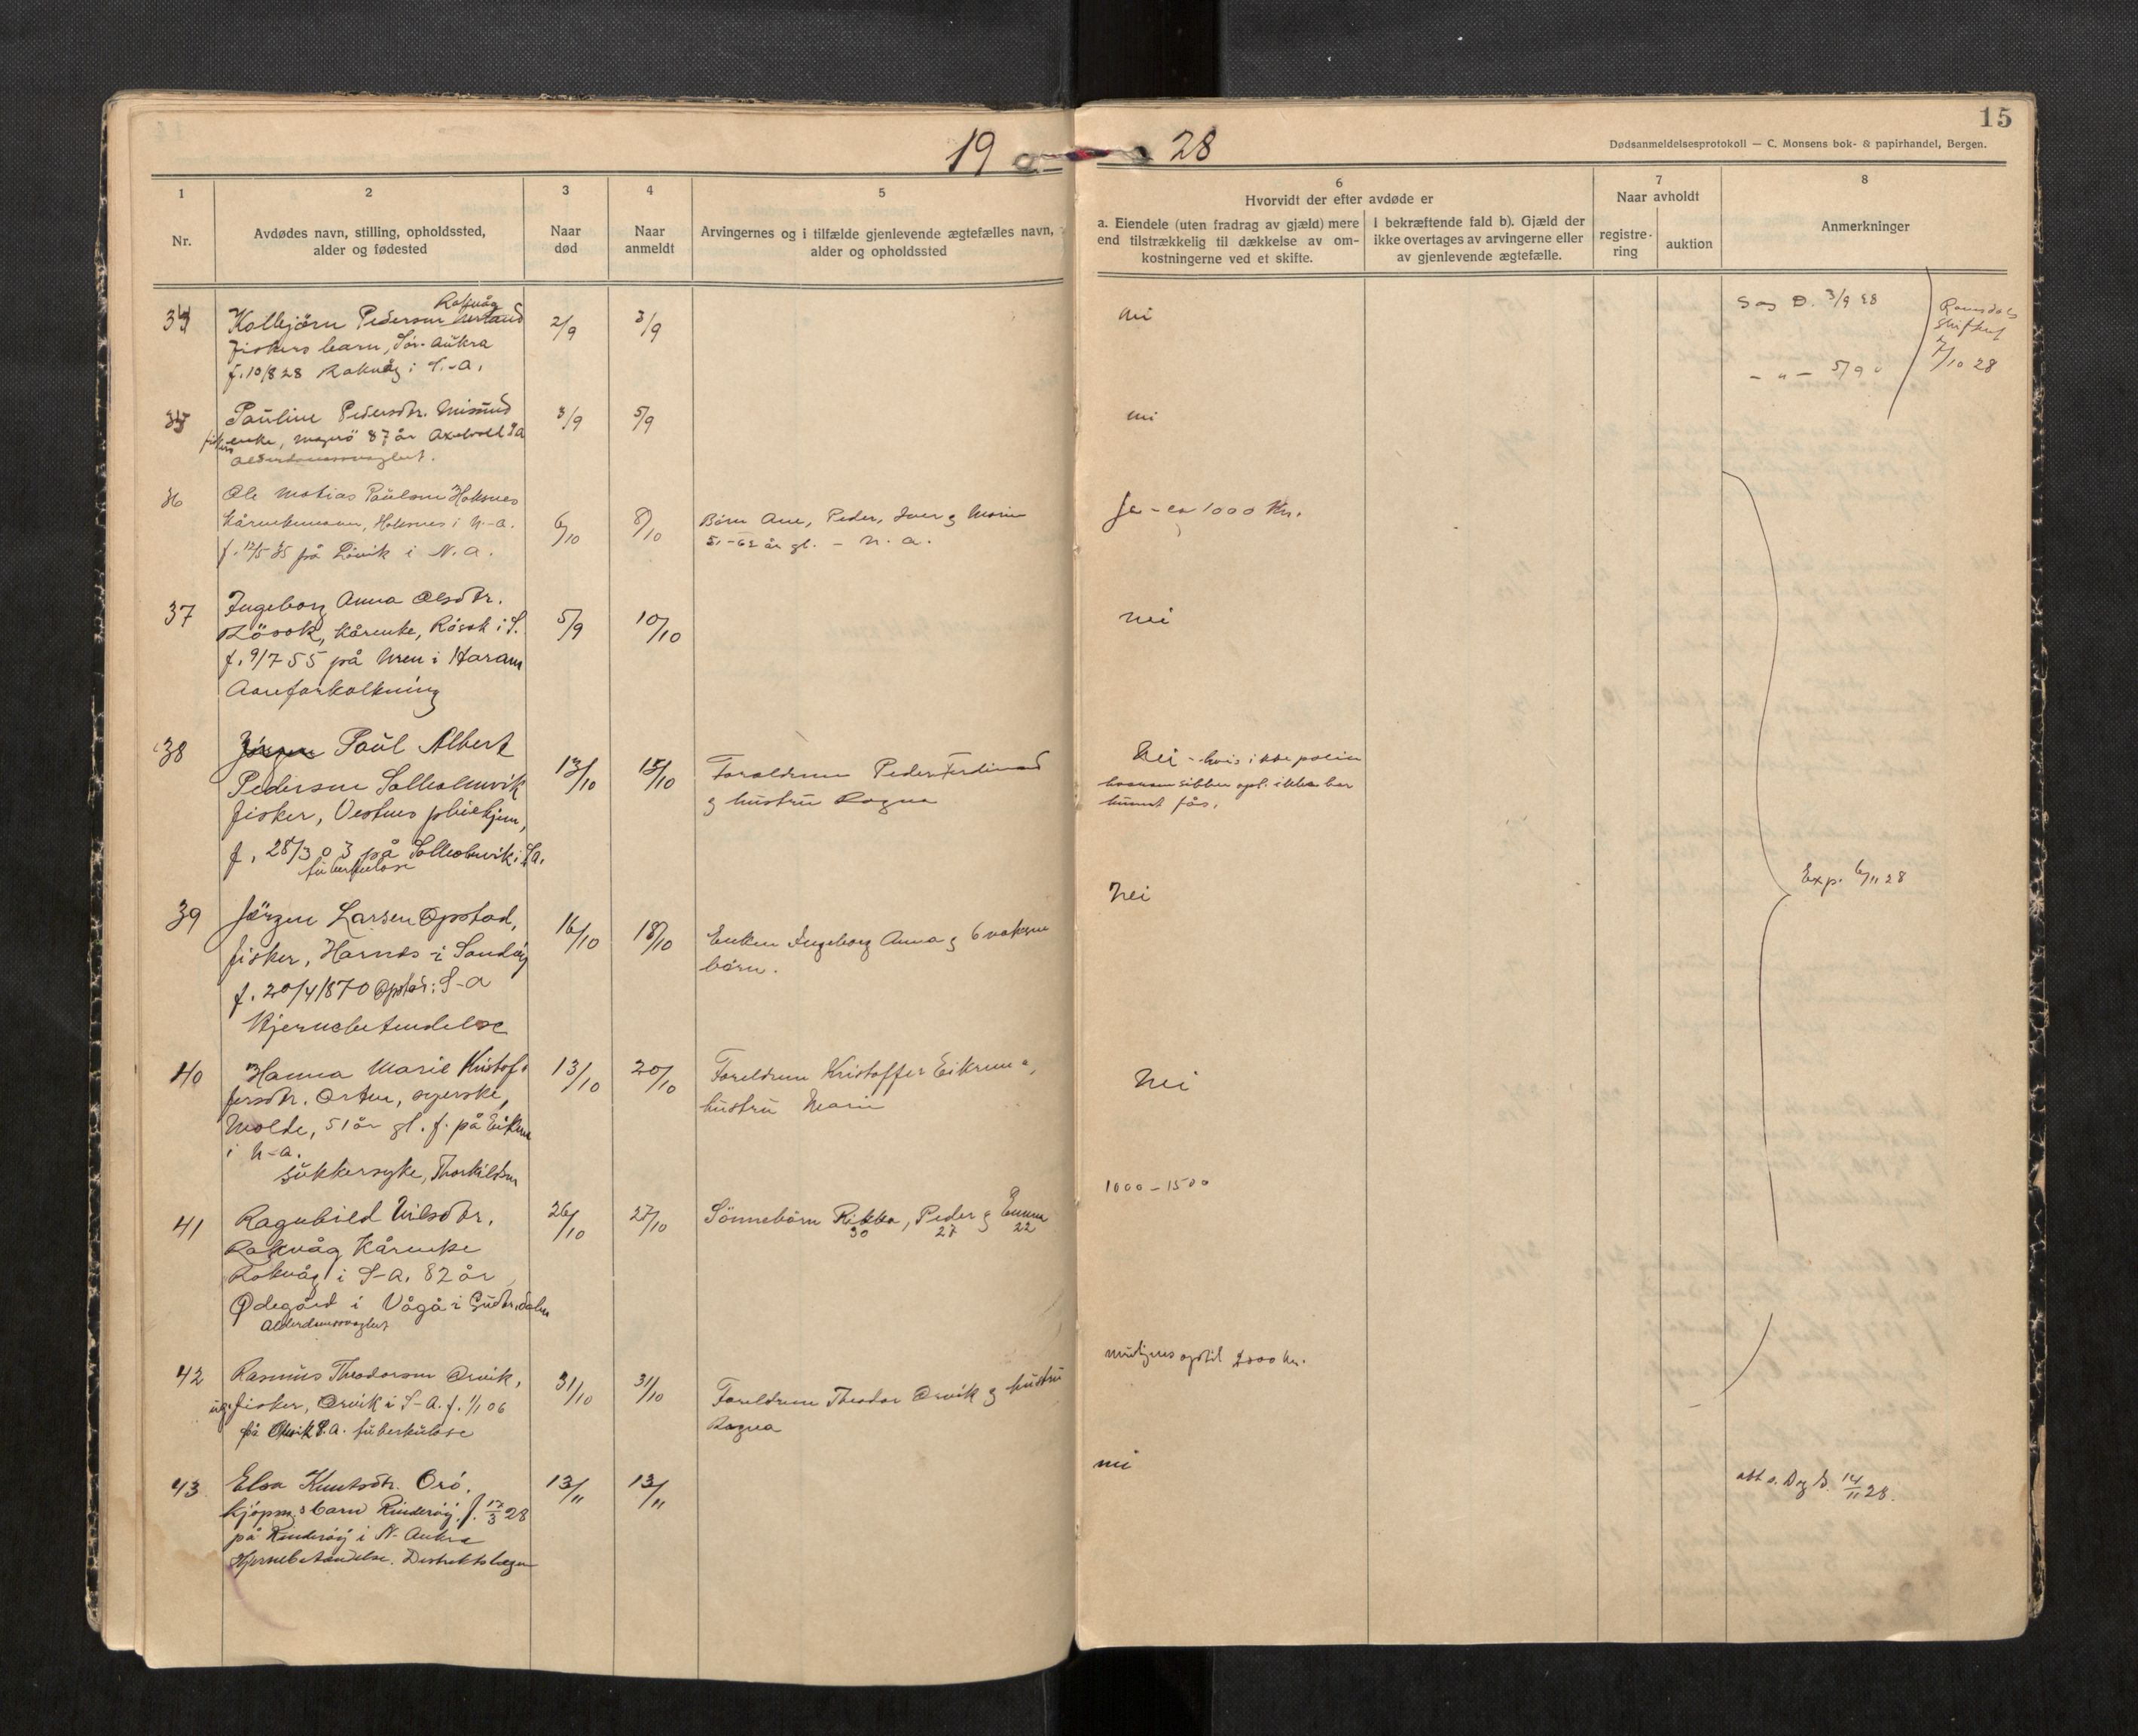 15
19 28
Dødsanmeldelsesprotokoll — C. Monsens bok- & papirhandel, Bergen.
1
2
3
4
5
6
7
8
Nr.
Avdødes navn, stilling, opholdssted,
alder og fødested
Naar
død
Naar
anmeldt
Arvingernes og i tilfælde gjenlevende ægtefælles navn,
alder og opholdssted
Hvorvidt der efter avdøde er
a. Eiendele (uten fradrag av gjæld) mere
end tilstrækkelig til dækkelse av om-
kostningerne ved et skifte.
I bekræftende fald b). Gjæld der
ikke overtages av arvingerne eller
av gjenlevende ægtefælle.
Naar avholdt
registre-
ring
auktion
Anmerkninger
Rakvåg
Kolbjörn Pedersen
2/9
3/9
nei
3/9 28
fiskers barn, Sör-Aukra
f. 10/8 28 Rakvåg i S.-A.
- " - 5/9 "
7/10 28
Pauline Pedersdtr. Misund
3/9
5/9
nei
enke, Magerö 87 år S.A
Alderdomssvaghet.
36
Ole Matias Paulsen Hoksnes
Kårenkemann, Hoksnes i N.-A.
6/10
8/10
Börn Ane, Peder, Iver og Marie
ja - ca 1000 Kr.
f. 12/5 35 på Lövik i N.A.
51-62 år gl. - N.A.
37
Ingeborg Anna Olsdtr.
Rösok, Kårenke, Rösok i S.
5/9
10/10
nei
f. 9/7 55 på Uren i Haram
Aareforkalkning
38
Jörgen Paul Albert
Pedersen Solholmvik
13/10
15/10
Foreldrene Peder Ferdinand
og hustru Ragna
Nei - hvis ikke polise
fås.
fisker, Vestnes pleiehjem,
f. 28/3 03 på Solholmvik i S.A.
tuberkulose
Exp. 6/11 28
39
Jörgen Larsen Opstad,
16/10
18/10
Enken Ingeborg Anna og 6 voksne
börn.
Nei
fisker, Harnes i Sandöy
f. 20/4 1870 Opstad i S-A
Hjernebetendelse
40
Hanna Marie Kristof-
13/10
20/10
Foreldrene Kristoffer Eikrem og
hustru Marie
Nei
fersdtr. Orten, syerske,
Molde, 51 år gl. f. på Eikrem
i N-A.
Sukkersyke, Thorkildsen
41
Ragnhild Nilsdtr.
26/10
27/10
Sönnebörn Rikka, Peder og Emma
30 27 22
1000 - 1500
Rakvåg Kårenke
Rakvåg i S-A. 82 år
Ødegård i Vågå i Gudbr.dalen
Alderdomssvaghet
42
Rasmus Theodorsen Orvik,
31/10
31/10
Foreldrene Theodor Orvik og hustru
Ragna
muligens optil 2000 kr.
ug. fisker, Orvik i S-A. f. 1/1 06
på Orvik S.A. tuberkulose
43
Elsa Knutsdtr. Orö.
13/11
13/11
nei
14/11 28.
kjöpm.s barn Rindaröy. f. 17/3 28
på Rindaröy i N-Aukra
Hjernebetændelse. Distriktslægen